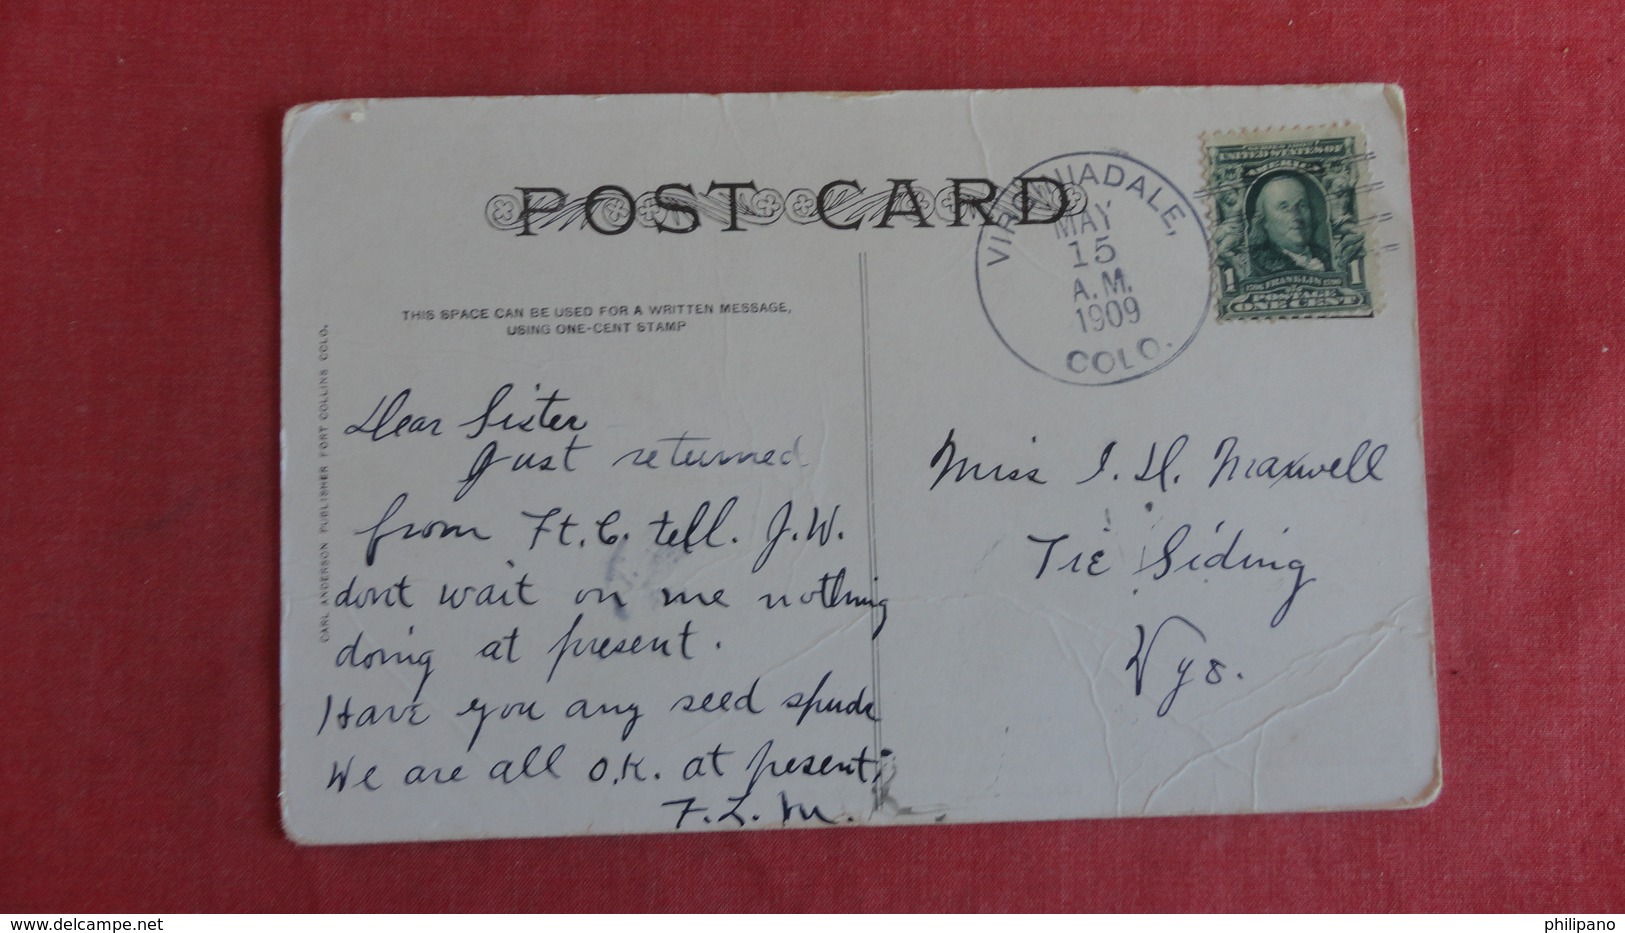 POST CARD
THIS SPACE CAN BE USED FOR A WRITTEN MESSAGE,
USING ONE-CENT STAMP
CARL ANDERSON PUBLISHER FORT COLLINS COLO.
Dear Sister
Just returned
from Ft. C. tell. J.W.
dont wait on me nothing
doing at present.
Have you any seed spuds
We are all O.K. at present,
F. L. M.
VIRGINIADALE,
MAY
15
A.M.
1909
COLO.
UNITED STATES OF
AMERICA
1 FRANKLIN 1
POSTAGE
ONE CENT
Miss I. H. Maxwell
Tie Siding
Wyo.
www.delcampe.net
philipano